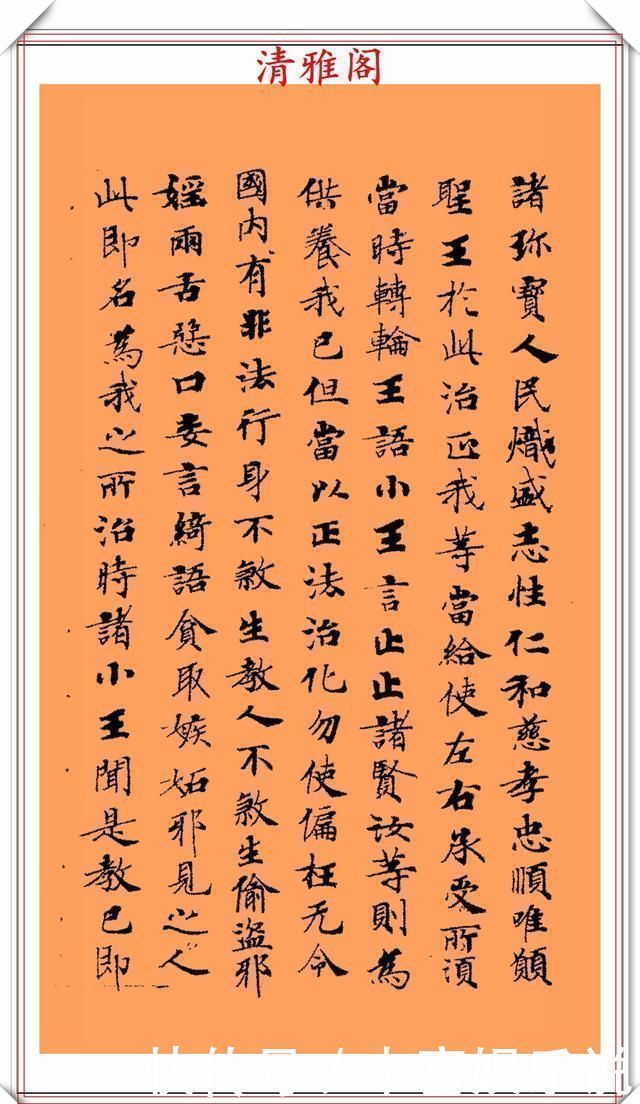 清雅阁
諸珎寳人民熾盛志性仁和慈孝忠順唯願
聖王於此治正我等當給使左右承受所須
當時轉輪王語小王言止止諸賢汝等則為
供養我已但當以正法治化勿使偏枉无令
國内有非法行身不煞生教人不煞生偷盗邪
婬兩舌惡口妄言綺語貪取嫉妬邪見之人
此即名為我之所治時諸小王聞是教已即
快传号/丰亨娱乐说